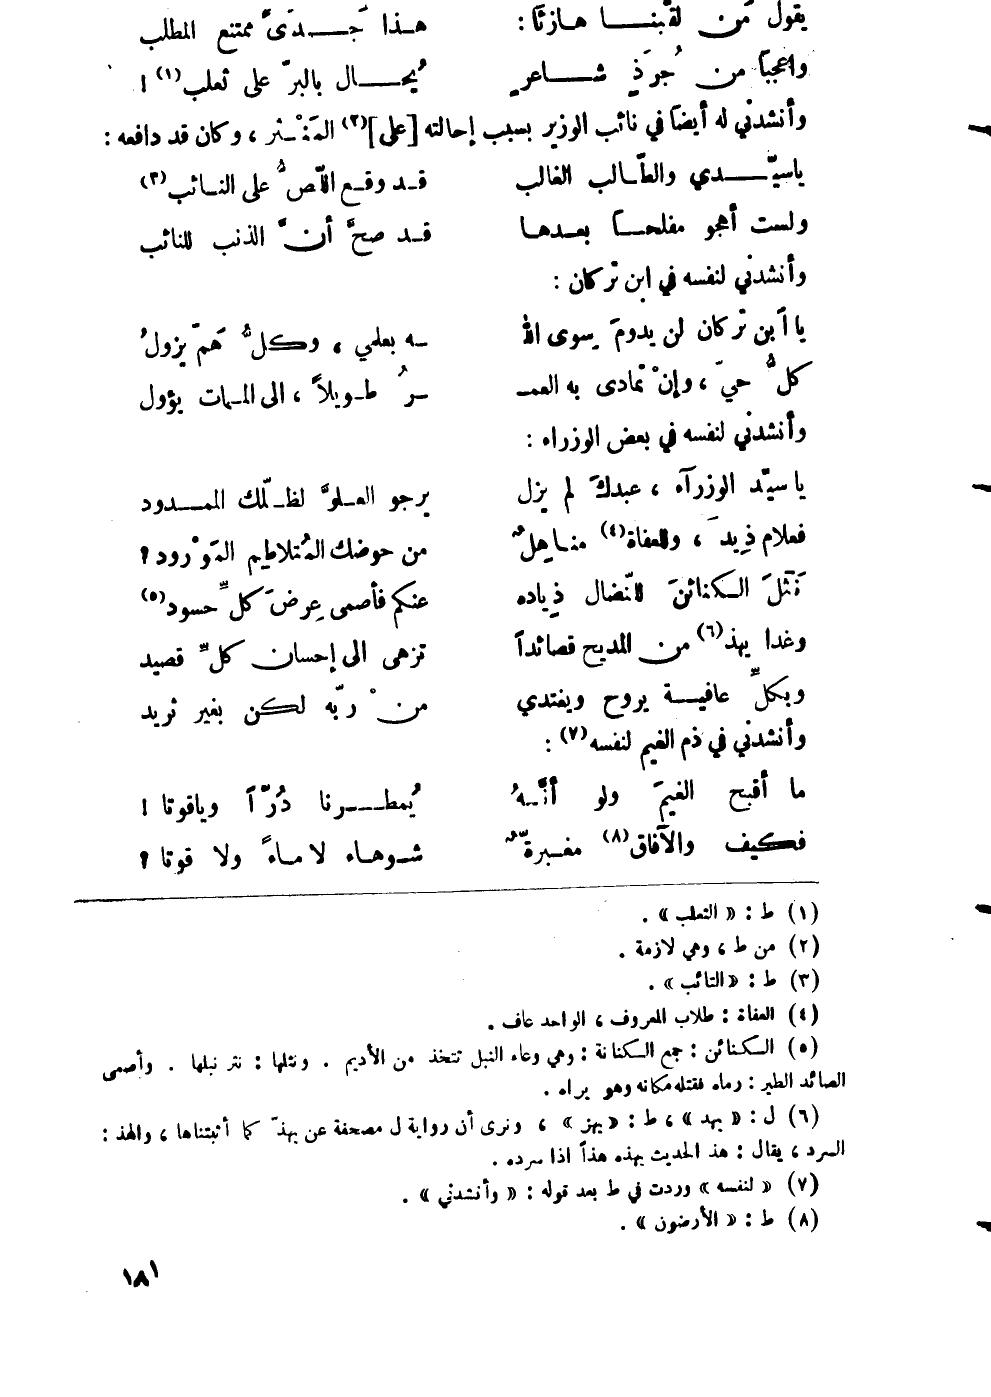 يقول مَن لقّبنا هازئاً : هذا جَدىً ممتنع المطلب
واعجبا من جُرَذٍ شاعرٍ يُحال بالبرّ على ثعلب (١) !
وأنشدني له أيضاً في نائب الوزير بسبب إحالته [على] (٢) المَغْثَر ، وكان قد دافعه :
ياسيّدي والطّالب الغالب قد وقع اللّصُّ على النائب (٣)
ولست أهجو مفلحاً بعدها قد صحَّ أنَّ الذنب للنائب
وأنشدني لنفسه في ابن تركان :
يا اَبن تركان لن يدومَ سوى اللـ ـه بعلمي ، وكلُّ هَمّ يزولُ
كلُّ حيّ ، وإنْ تمادى به العمـ ـرُ طويلاً ، الى الممات يؤول
وأنشدني لنفسه في بعض الوزراء :
يا سيّد الوزرآء ، عبدكَ لم يزل يرجو العلوَّ لظلّك الممدود
فعلام ذِيدَ ، وللعفاة (٤) مناهلٌ من حوضك المُتلاطِم المَوْرود ؟
نَثَلَ الكنائنَ للنّضال ذِياده عنكم فأصمى عِرضَ كلِّ حسود (٥)
وغدا يهذ (٦) من المديح قصائداً تزهى الى إحسان كلِّ قصيد
وبكلِّ عافية يروح ويغتدي منْ ربّه لكن بغير ثريد
وأنشدني في ذم الغيم لنفسه (٧) :
ما أقبح الغيمَ ولو أنَّهُ يُمطرنا دُرّاً وياقوتا !
فكيف والآفاق (٨) مغبرةٌ شوهاء لا ماءً ولا قوتا ؟
(١) ط : « التعلب » .
(٢) من ط ، وهي لازمة .
(٣) ط : « التائب » .
(٤) العفاة : طلاب المعروف ، الواحد عاف .
(٥) الكنائن : جمع الكنانة : وهي وعاء النبل تتخذ من الأديم . ونثلها : نثر نبلها . وأصمى
الصائد الطير : رماه فقتله مكانه وهو يراه .
(٦) ل : « يهد » ، ط : « يهز » ، ونرى أن رواية ل مصحفة عن يهذّ كما أثبتناها ، والهذ :
السرد ، يقال : هذ الحديث يهذه هذاً اذا سرده .
(٧) « لنفسه » وردت في ط بعد قوله : « وأنشدني » .
(٨) ط : « الأرضون » .
١٨١